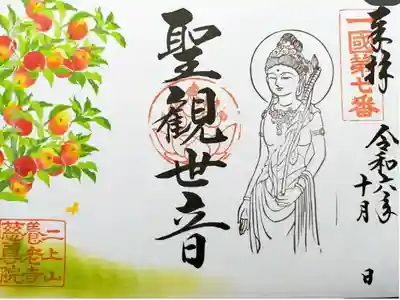 奉拝
一國第七番
令和六年
十月　日
聖觀世音
二上山
養老寺
慈眞院